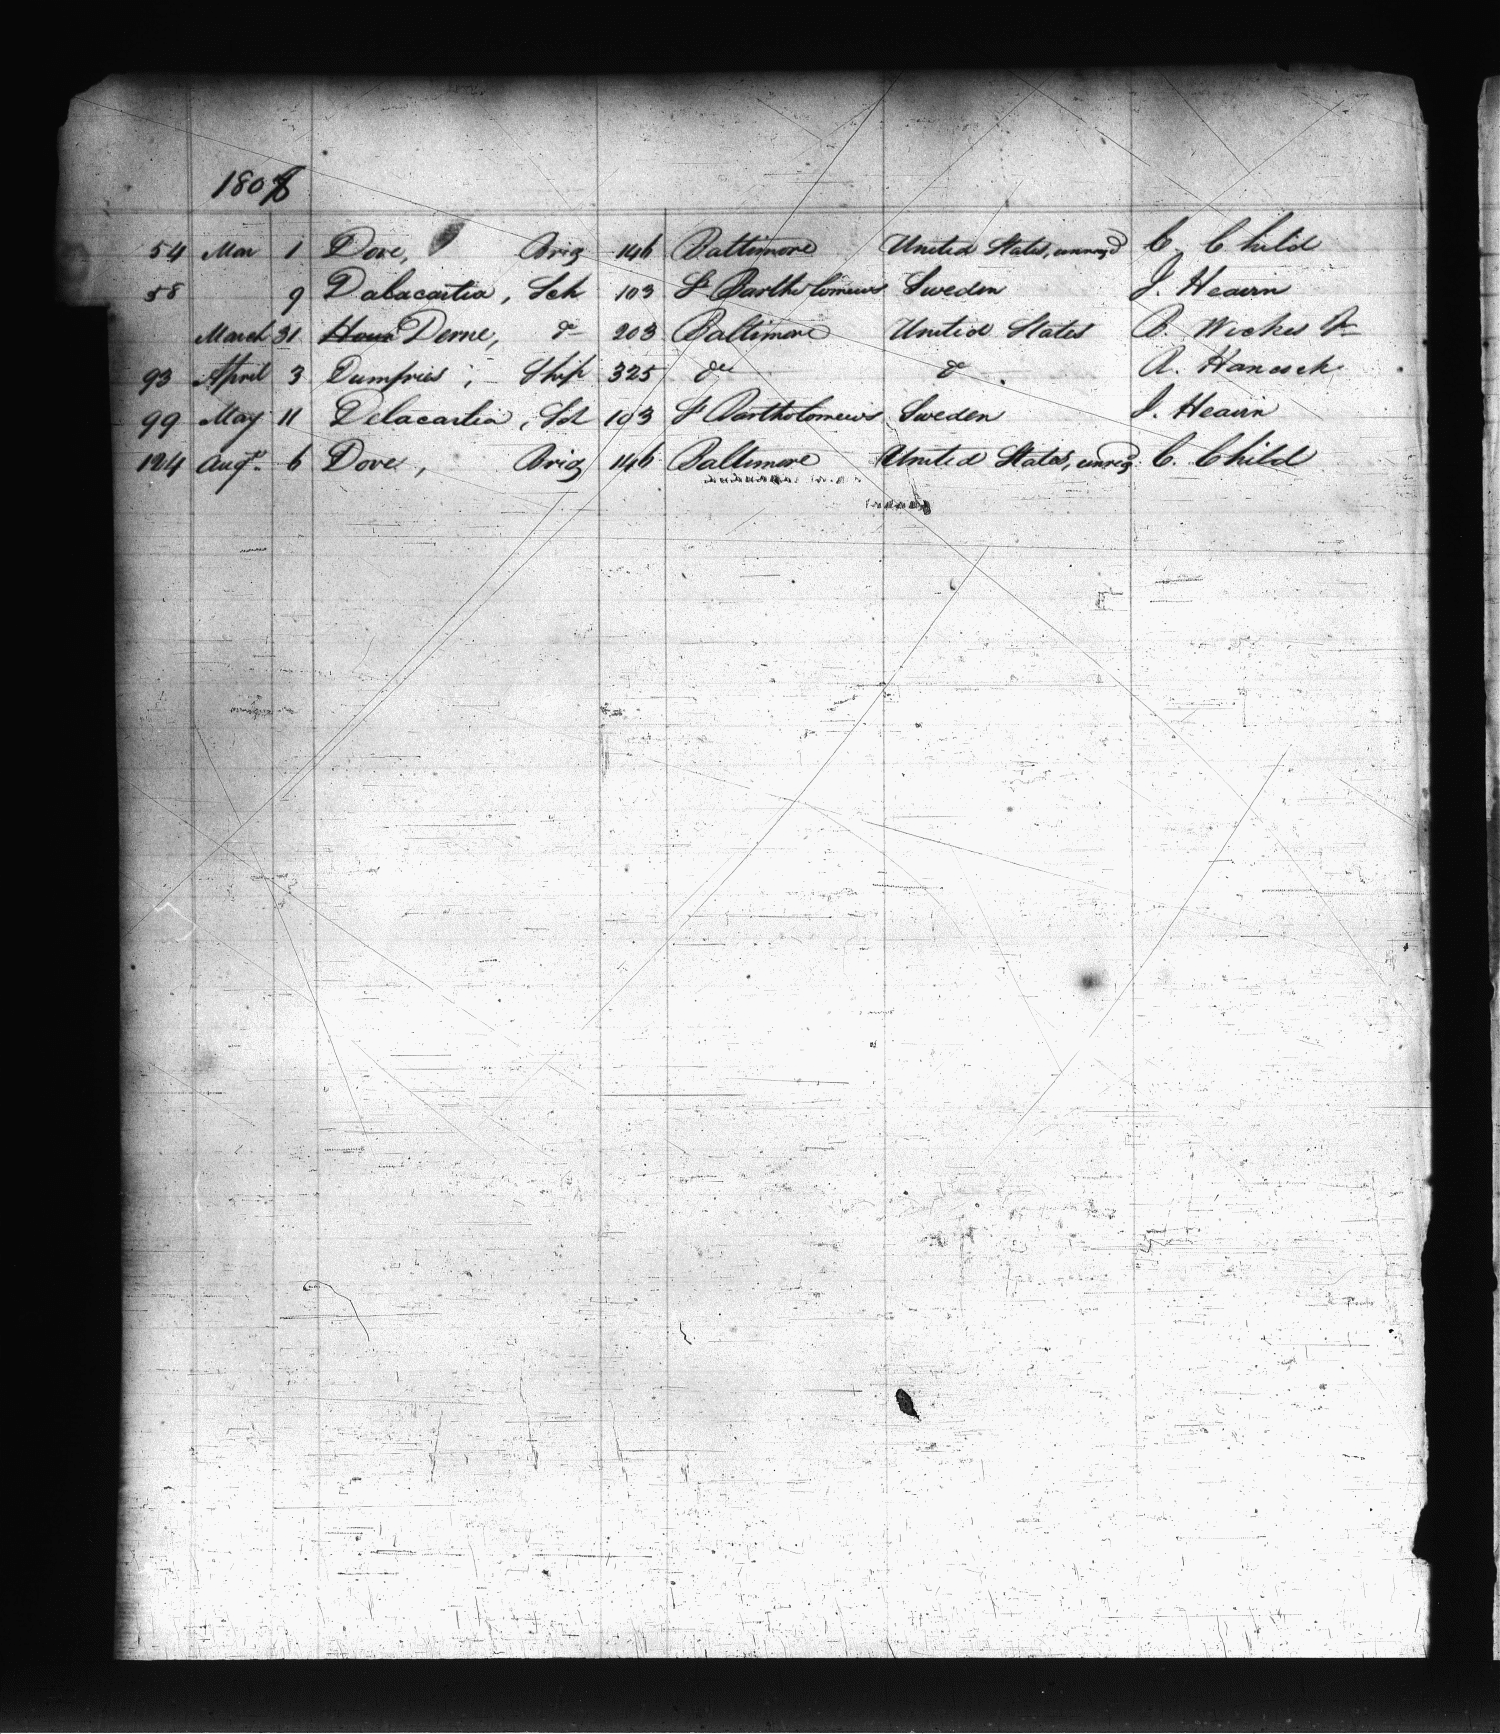 1808
54 Mar 1 Dove, Brig 146 Baltimore United States, unreg'd C. Child
58 9 Dalacartia, Sch 103 St Bartholomews Sweden J. Hearn
March 31 Derne, do 203 Baltimore United States B. Wickes Jr
93 April 3 Dumfries, Ship 325 do do R. Hancock
99 May 11 Delacartia, Sch 103 St Bartholomews Sweden J. Hearn
124 Augt. 6 Dove, Brig 146 Baltimore United States, unreg. C. Child